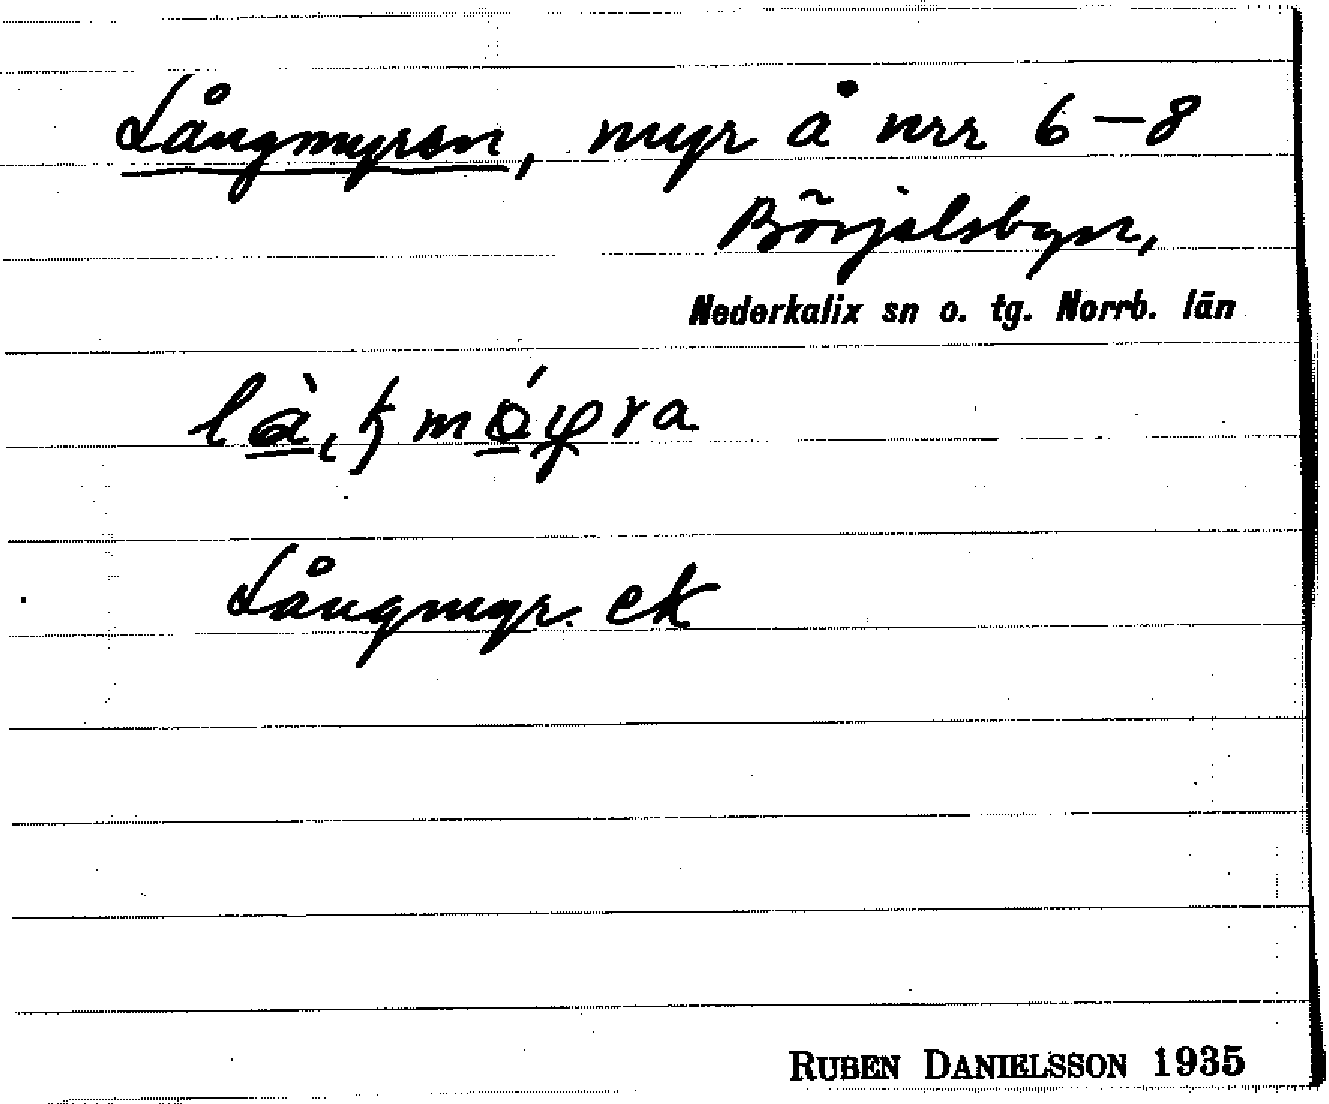 Långmyren, myr å nrr 6–8
Börjelsbyn,
Nederkalix sn o. tg. Norrb. län
Långmyr. ek
RUBEN DANIELSSON 1935